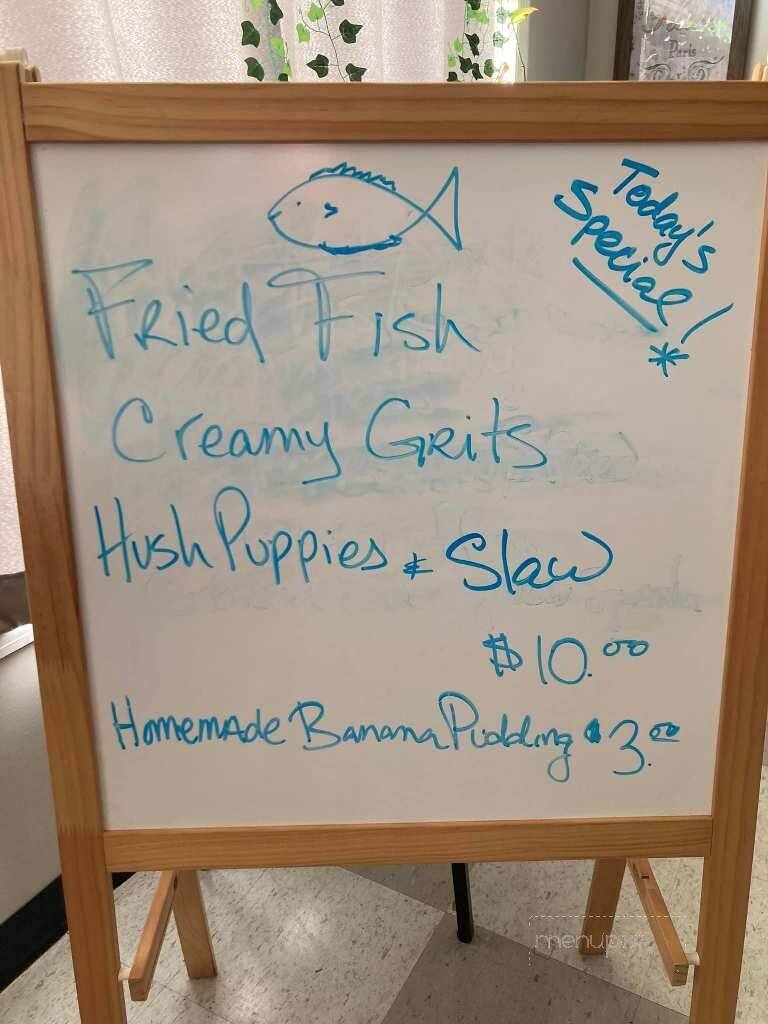 Paris
Today's
Special!
*
Fried Fish
Creamy Grits
Hush Puppies & Slaw
$10.00
Homemade Banana Pudding $3.00